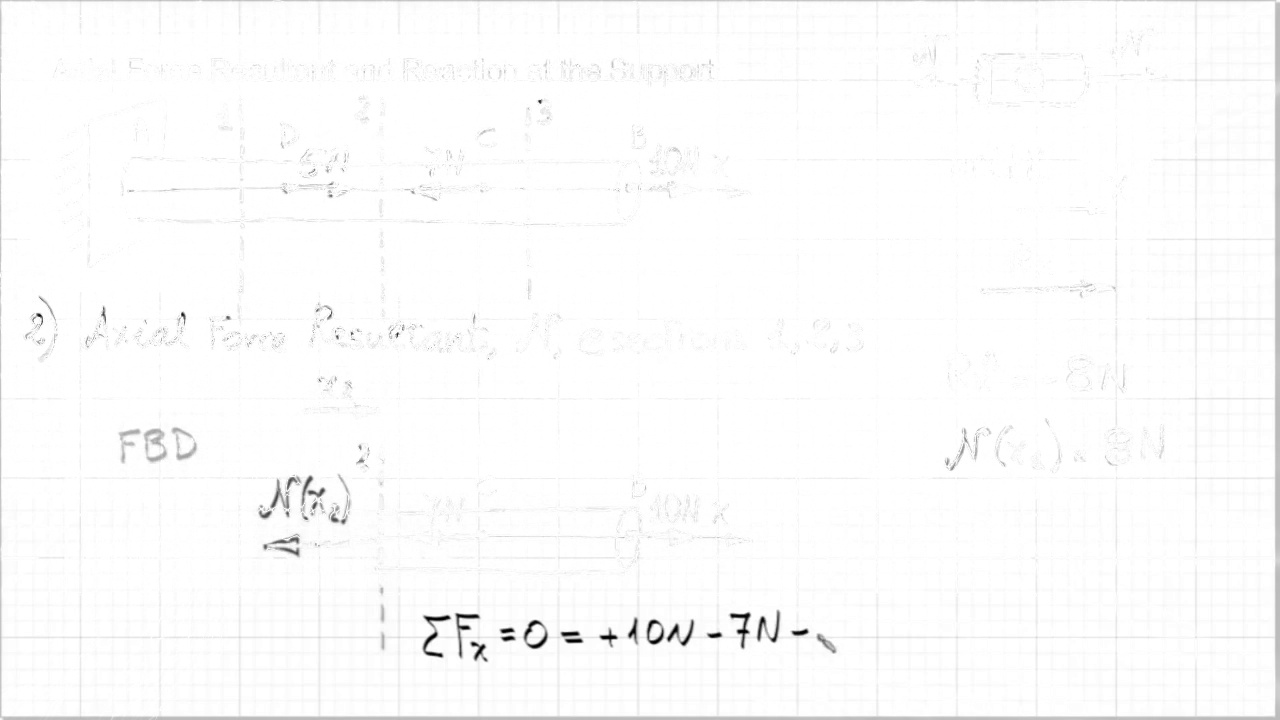 Axial Force Resultant and Reaction at the Support
N N
A 1 D 2 C 3 B
5N 7N 10N x
2) Axial Force Resultant, N, @ sections 1, 2, 3
x₂
= -8N
FBD 2 N(x₁) = 8N
N(x₂) 7N C B 10N x
ΣFx = 0 = +10N - 7N -